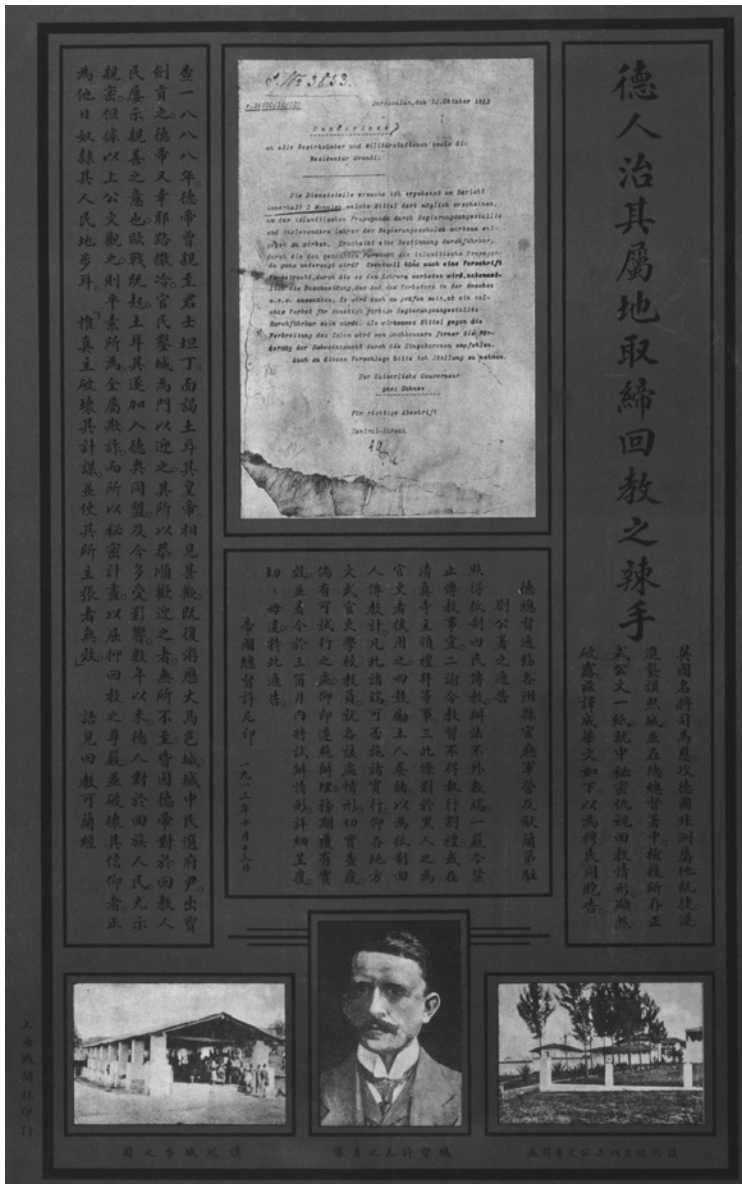 德人治其屬地取締回教之辣手
英國名將司馬慈攻德國非洲屬地既捷遂
進襲謨熱城。並在德總督署中檢獲所存正
式公文一紙就中秘密仇視回教情形顯然
破露茲譯成華文如下。以為穆民同胞告。
J. No 3853.
Daressalam, den 13. Oktober 1913
Runderlass
an alle Bezirksämter und Militärstationen sowie die
Residentur Urundi.
Die Dienststelle ersuche ich ergebenst um Bericht
innerhalb 3 Monaten, welche Mittel dort möglich erscheinen,
um der islamitischen Propaganda durch Regierungsangestellte
und insbesondere Lehrer der Regierungsschulen wirksam ent-
gegen zu wirken. Erscheint eine Bestimmung durchführbar,
durch die dem genannten Personal die islamitische Propagan-
da ganz untersagt wird? Eventuell käme auch eine Vorschrift
inbetracht, durch die es den Lehrern verboten wird, nebenamt-
lich die Beschneidung, das Amt des Vorbeters in der Moschee
u.s.w. auszuüben. Es wird auch zu prüfen sein, ob ein sol-
ches Verbot für sonstige farbige Regierungsangestellte
durchführbar sein würde. Als wirksames Mittel gegen die
Verbreitung des Islam wird von Sachkennern ferner die För-
derung der Schweinezucht durch die Eingeborenen empfohlen.
Auch zu diesem Vorschlage bitte ich Stellung zu nehmen.
Der Kaiserliche Gouverneur
gez: Schnee
Für richtige Abschrift
Central-Bureau
德總督通飭各州縣官廳軍營及歇蘭第駐
劄公署之通告
照得抵制回民傳教辦法不外數端一嚴令禁
止傳教事宜二諭令教習不得執行割禮或在
清真寺主領禮拜等事三此條對於黑人之為
官吏者援用之四鼓勵土人豢豬以為抵制回
人傳教計。凡此諸端可否施諸實行仰各地方
文武官吏學校教員就各該處情形切實查覆。
倘有可試行之處仰即遵照辦理務期獲有實
效並着令於三箇月內將試辦情形詳細呈覆。
切〻毋違特此通告。
帝國總督許尼印 一九一三年十月十三日
查一八八八年。德帝曾親至君士坦丁。面謁土耳其皇帝。相見甚歡。既復游歷大馬色城。城中民選府尹。出寶
劍貢之。德帝又幸耶路撒冷。官民鑿城為門以迎之。其所以恭順歡迎之者。無所不至。皆因德帝對於回教人
民屢示親善之意也。歐戰既起。土耳其遂加入德奧同盟。及今多受影響。數年以來。德人對於回族人民。尤示
親密。但據以上公文觀之。則平素所為。全屬欺詐。而所以秘密計畫。以屈抑回教之尊嚴。並破壞其信仰者。正
為他日奴隸其人民地步耳。「惟真主破壞其計謀。並使其所主張者無效」 語見回教可蘭經
謨熱城市之圖
總督許尼之肖像
謨熱地方以上公文尋獲處
上海戰聞社印行